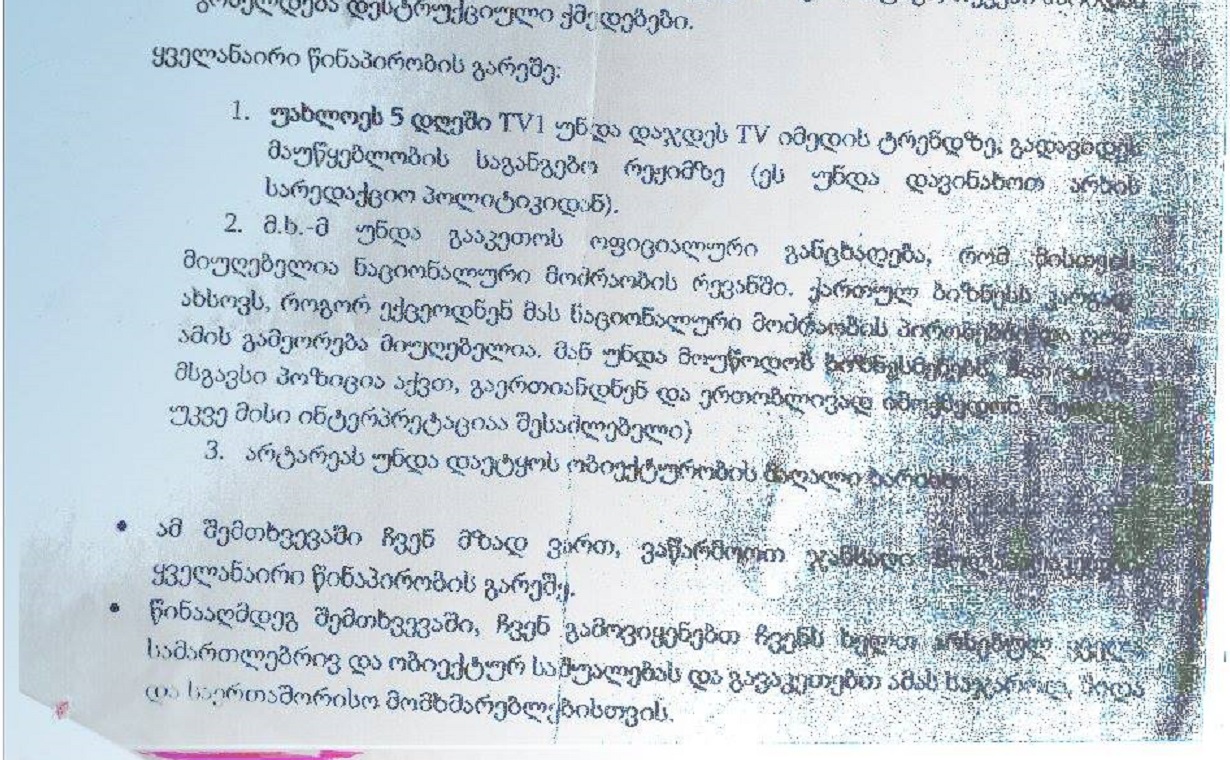 დესტრუქციული ქმედებები.
ყველანაირი წინაპირობის გარეშე:
1. უახლოეს 5 დღეში TV1 უნდა დაჯდეს TV იმედის ტრენდზე, გადავიდეს
მაუწყებლობის საგანგებო რეჟიმზე (ეს უნდა დავინახოთ არხის
სარედაქციო პოლიტიკიდან).
2. მ.ხ.-მ უნდა გააკეთოს ოფიციალური განცხადება, რომ მისთვის
მიუღებელია ნაციონალური მოძრაობის რევანში. ქართულ ბიზნესს კარგად
ახსოვს, როგორ ექცეოდნენ მას ნაციონალური მოძრაობის
ამის გამეორება მიუღებელია. მან უნდა მოუწოდოს ბიზნესმენებს,
მსგავსი პოზიცია აქვთ, გაერთიანდნენ და ერთობლივად
უკვე მისი ინტერპრეტაციაა შესაძლებელი)
3. არტარეას უნდა დაეტყოს ობიექტურობის მაღალი ხარისხი
• ამ შემთხვევაში ჩვენ მზად ვართ, ვაწარმოოთ
ყველანაირი წინაპირობის გარეშე.
• წინააღმდეგ შემთხვევაში, ჩვენ გამოვიყენებთ ჩვენს ხელთ არსებულ ყველა
სამართლებრივ და ობიექტურ საშუალებას და გავაკეთებთ ამას საჯაროდ, შიდა
და საერთაშორისო მომხმარებლებისთვის.